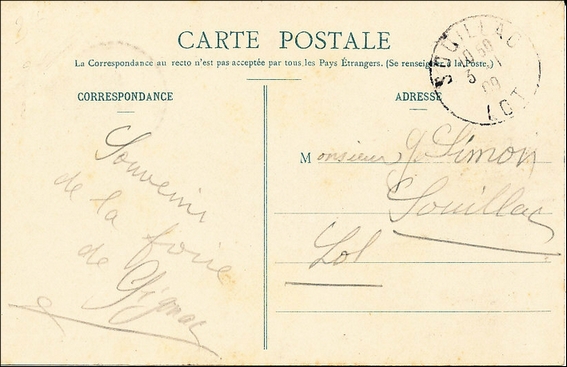 CARTE POSTALE
La Correspondance au recto n'est pas acceptée par tous les Pays Étrangers. (Se renseigner à la Poste.)
CORRESPONDANCE
Souvenir
de la foire
de Gignac
ADRESSE
Monsieur J. Simon
Souillac
Lot
SOUILLAC
LOT